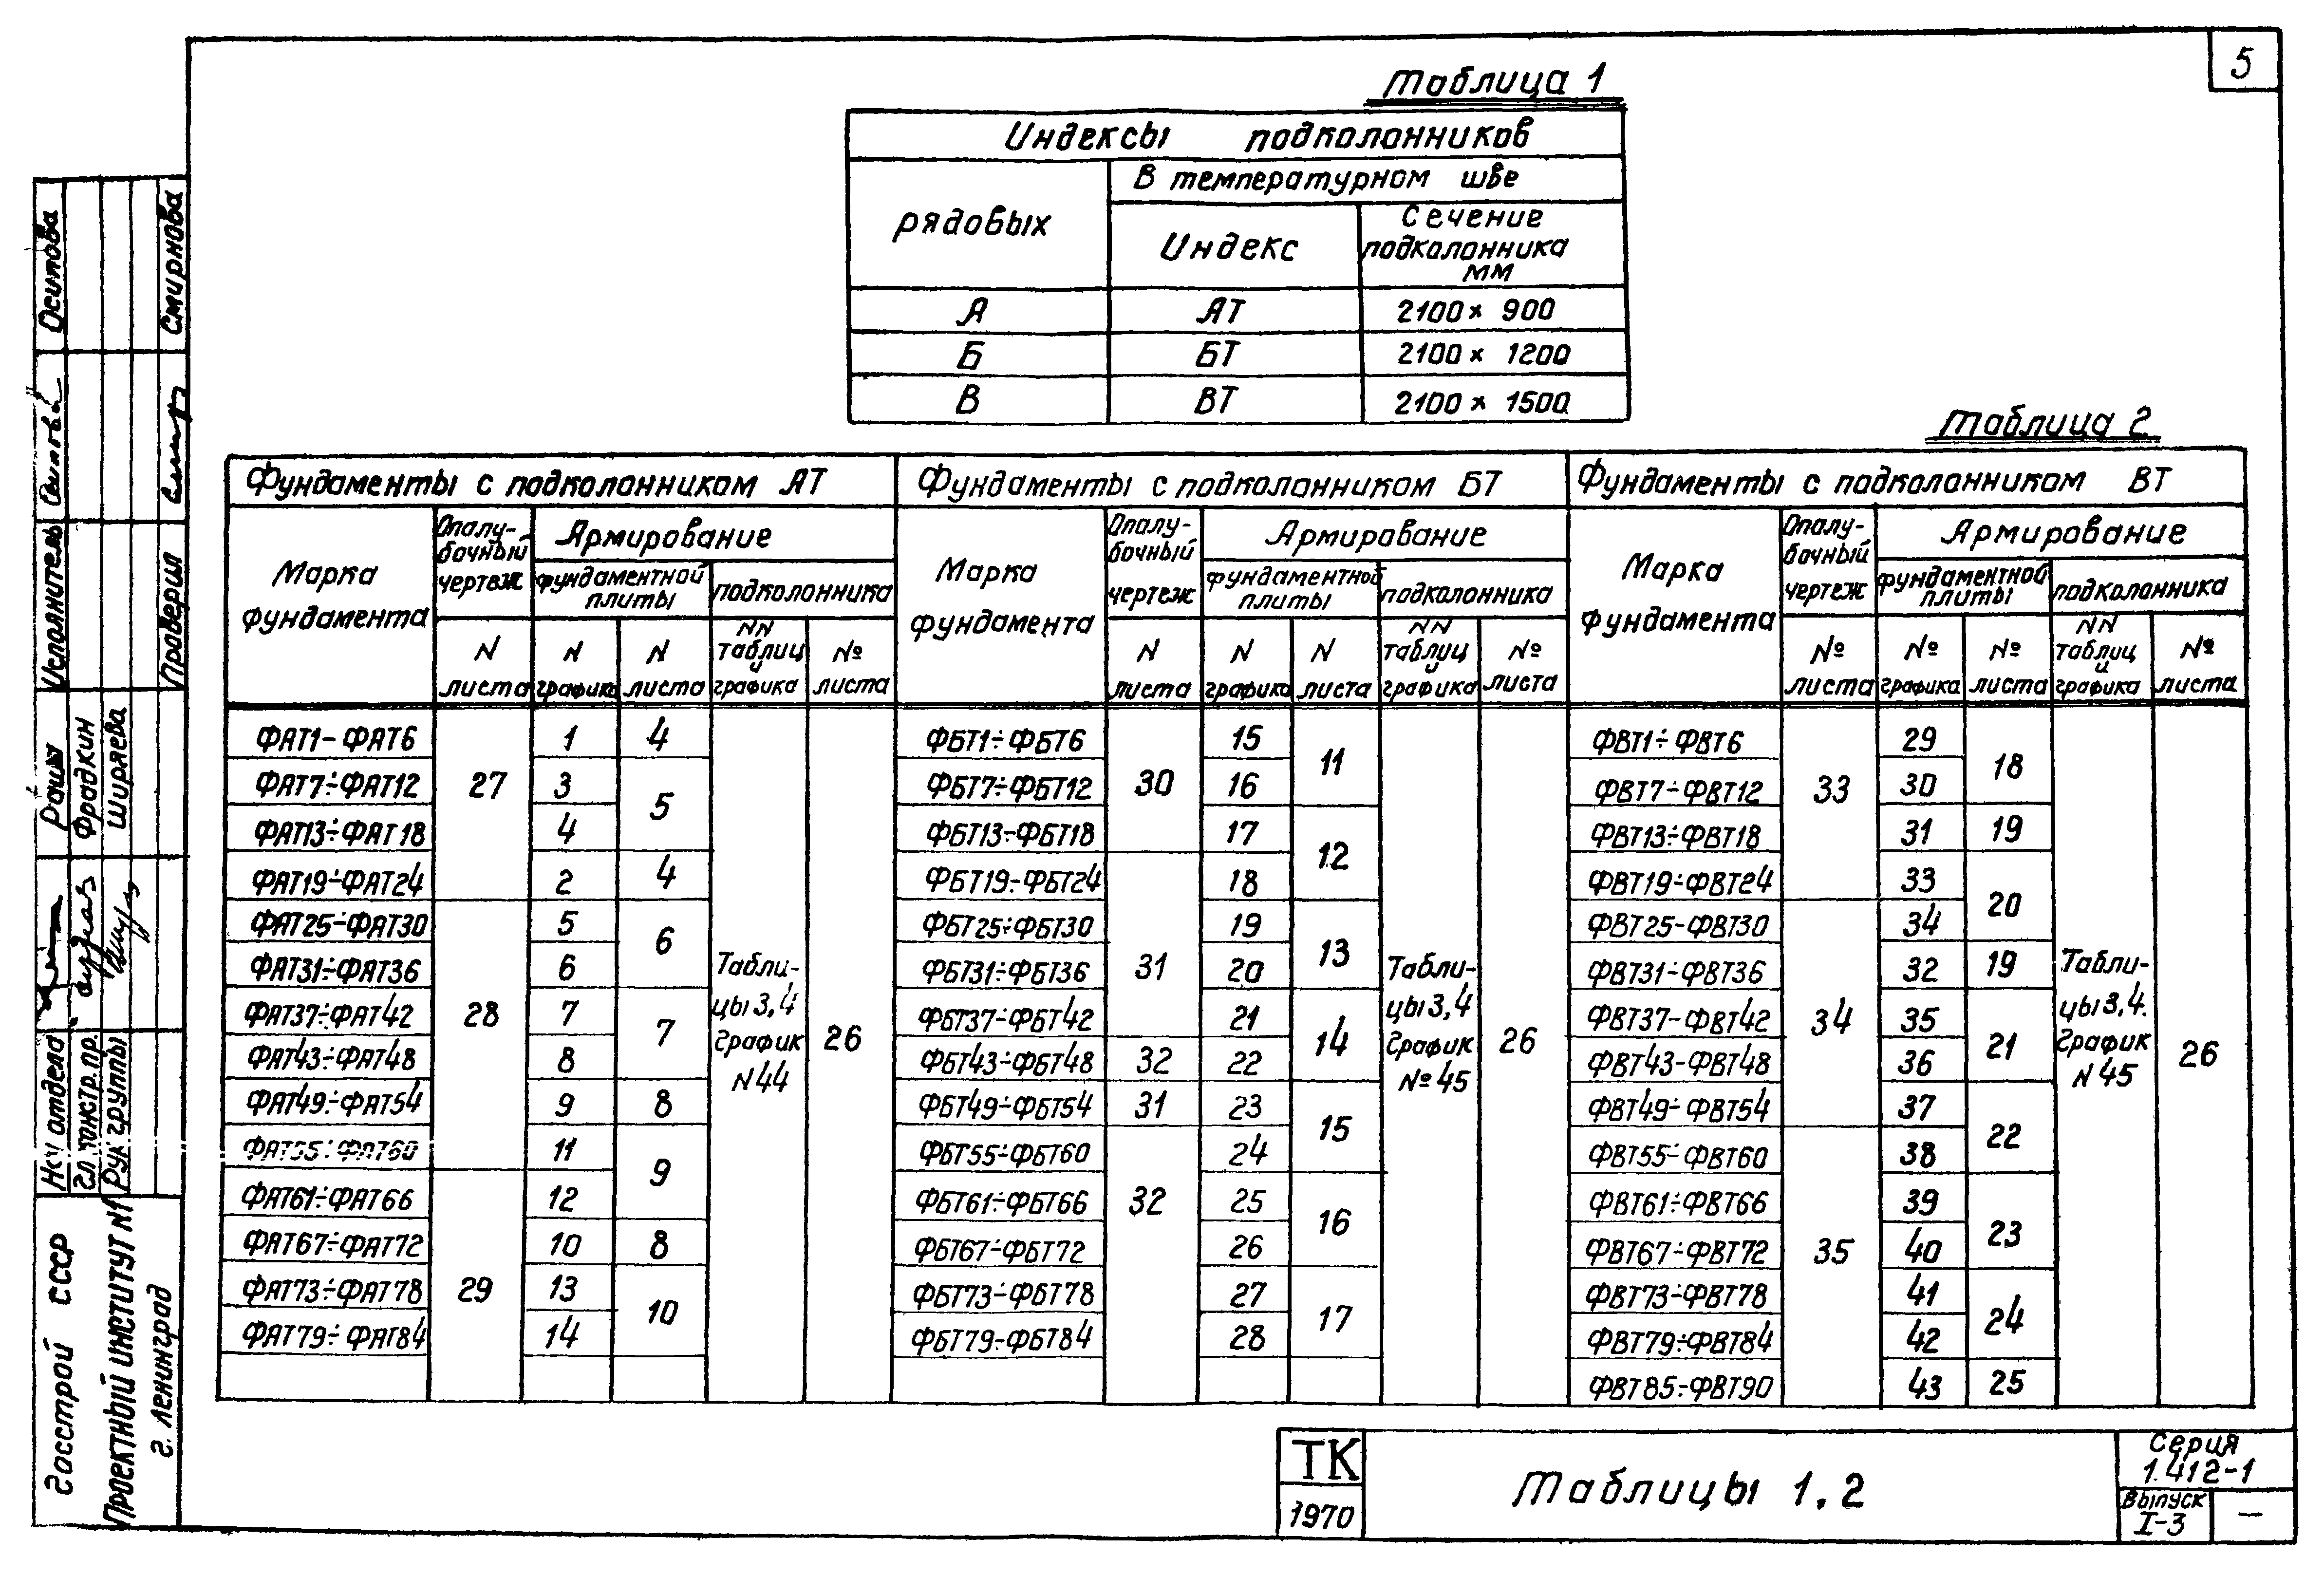 5
Таблица 1
Индексы подколонников
рядовых
В температурном шве
Индекс
Сечение
подколонника
мм
А АТ 2100 × 900
Б БТ 2100 × 1200
В ВТ 2100 × 1500
Таблица 2
Фундаменты с подколонником АТ
Марка
фундамента
Опалу-
бочный
чертеж
Армирование
фундаментной
плиты
подколонника
N
листа
N
графика
N
листа
NN
таблиц
и
графика
№
листа
ФАТ1-ФАТ6 1 4
ФАТ7÷ФАТ12 27 3 5
ФАТ13÷ФАТ18 4
ФАТ19÷ФАТ24 2 4
ФАТ25-ФАТ30 5 6
ФАТ31÷ФАТ36 6
ФАТ37÷ФАТ42 28 7 7
ФАТ43÷ФАТ48 8
ФАТ49÷ФАТ54 9 8
ФАТ55÷ФАТ60 11 9
ФАТ61÷ФАТ66 12
ФАТ67÷ФАТ72 10 8
ФАТ73÷ФАТ78 29 13 10
ФАТ79÷ФАТ84 14
Табли-
цы 3,4
График
N 44
26
Фундаменты с подколонником БТ
Марка
фундамента
Опалу-
бочный
чертеж
Армирование
фундаментной
плиты
подколонника
N
листа
N
графика
N
листа
NN
таблиц
и
графика
№
листа
ФБТ1÷ФБТ6 15 11
ФБТ7÷ФБТ12 30 16
ФБТ13÷ФБТ18 17 12
ФБТ19÷ФБТ24 18
ФБТ25÷ФБТ30 19 13
ФБТ31÷ФБТ36 31 20
ФБТ37÷ФБТ42 21 14
ФБТ43÷ФБТ48 32 22
ФБТ49÷ФБТ54 31 23 15
ФБТ55÷ФБТ60 24
ФБТ61÷ФБТ66 32 25 16
ФБТ67÷ФБТ72 26
ФБТ73-ФБТ78 27 17
ФБТ79-ФБТ84 28
Табли-
цы 3,4
График
№ 45
26
Фундаменты с подколонником ВТ
Марка
фундамента
Опалу-
бочный
чертеж
Армирование
фундаментной
плиты
подколонника
№
листа
№
графика
№
листа
NN
таблиц
и
графика
№
листа
ФВТ1÷ФВТ6 29 18
ФВТ7÷ФВТ12 33 30
ФВТ13÷ФВТ18 31 19
ФВТ19÷ФВТ24 33 20
ФВТ25-ФВТ30 34
ФВТ31÷ФВТ36 32 19
ФВТ37-ФВТ42 34 35 21
ФВТ43-ФВТ48 36
ФВТ49÷ФВТ54 37 22
ФВТ55÷ФВТ60 38
ФВТ61÷ФВТ66 39 23
ФВТ67÷ФВТ72 35 40
ФВТ73÷ФВТ78 41 24
ФВТ79÷ФВТ84 42
ФВТ85÷ФВТ90 43 25
Табли-
цы 3,4.
График
N 45
26
ТК
1970
Таблицы 1.2
Серия
1.412-1
Выпуск
I-3
—
Госстрой СССР
Проектный институт №1
г. Ленинград
Нач отдела
Гл. констр. пр. Фрадкин
Рук группы Ширяева
Исполнитель Осипова
Проверил Смирнова